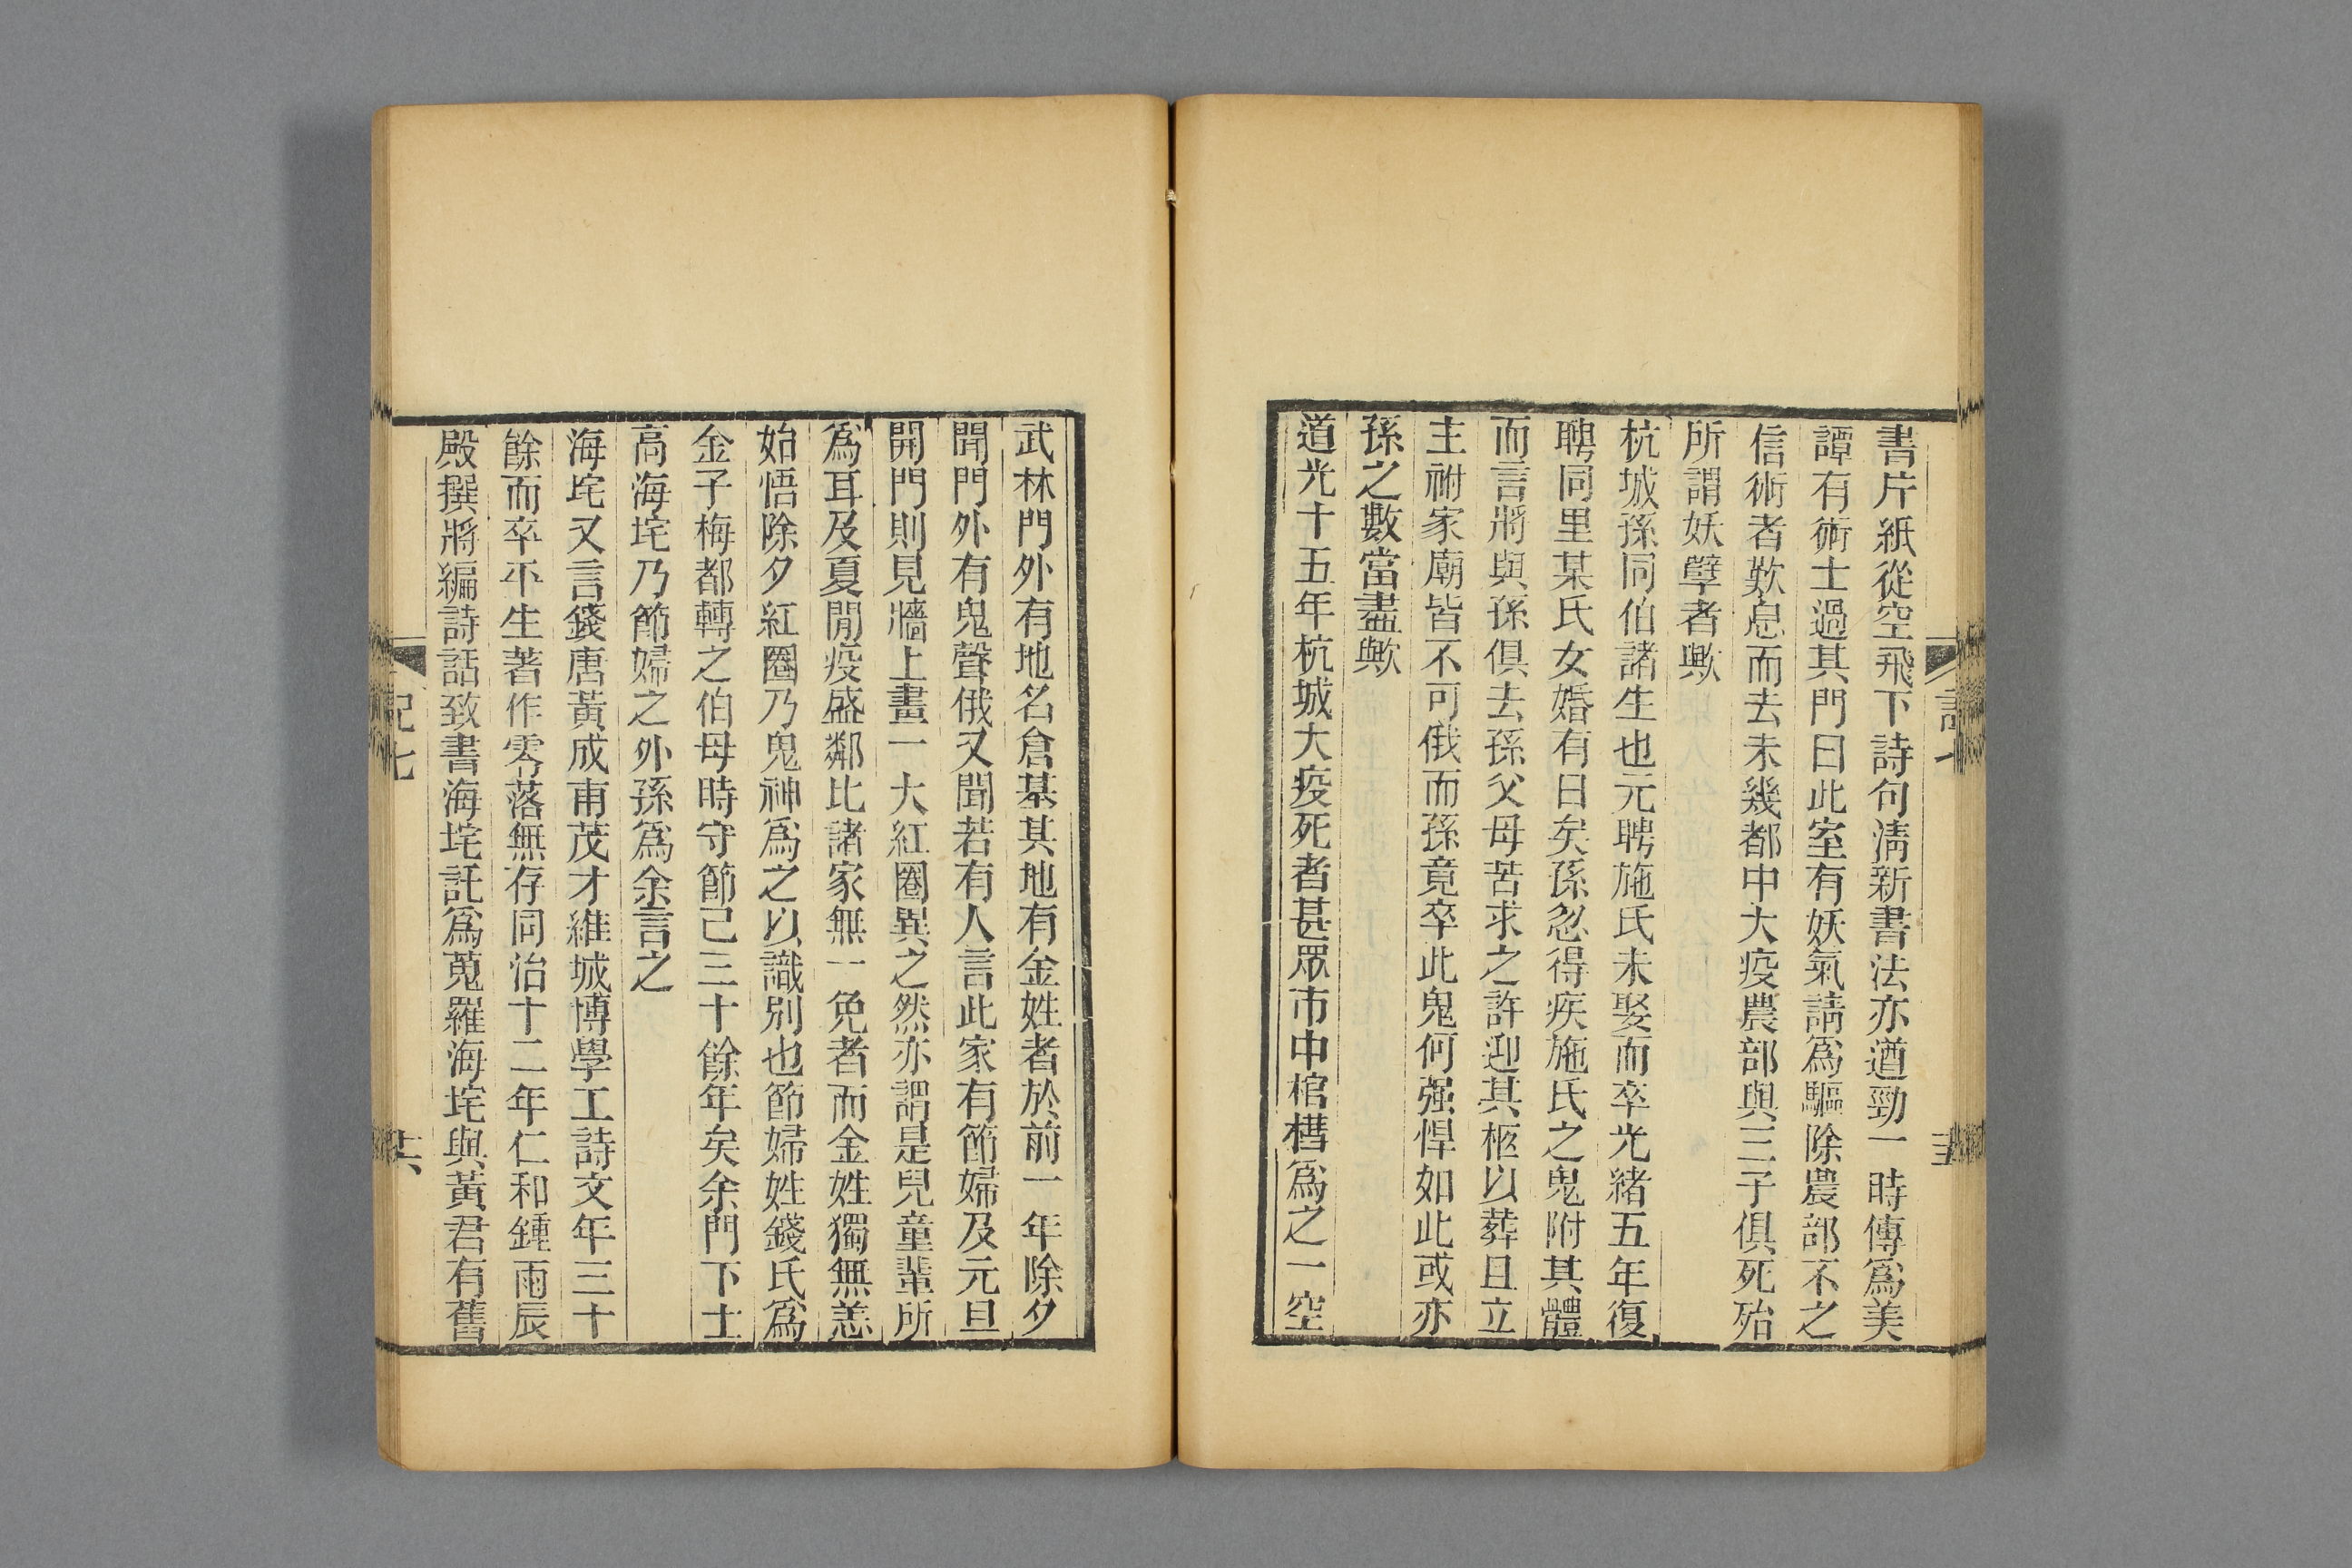 書片紙從空飛下詩句淸新書法亦遒勁一時傳爲美
譚有術士過其門曰此室有妖氣請爲驅除農部不之
信術者歎息而去未幾都中大疫農部與三子俱死殆
所謂妖孽者歟
杭城孫同伯諸生也元聘施氏未娶而卒光緒五年復
聘同里某氏女婚有日矣孫忽得疾施氏之鬼附其體
而言將與孫俱去孫父母苦求之許迎其柩以葬且立
主祔家廟皆不可俄而孫竟卒此鬼何强悍如此或亦
孫之數當盡歟
道光十五年杭城大疫死者甚眾市中棺槥爲之一空
武林門外有地名倉基其地有金姓者於前一年除夕
聞門外有鬼聲俄又聞若有人言此家有節婦及元旦
開門則見牆上畫一大紅圈異之然亦謂是兒童輩所
爲耳及夏閒疫盛鄰比諸家無一免者而金姓獨無恙
始悟除夕紅圈乃鬼神爲之以識別也節婦姓錢氏爲
金子梅都轉之伯母時守節已三十餘年矣余門下士
高海垞乃節婦之外孫爲余言之
海垞又言錢唐黃成甫茂才維城博學工詩文年三十
餘而卒平生著作零落無存同治十二年仁和鍾雨辰
殿撰將編詩話致書海垞託爲蒐羅海垞與黃君有舊
記七